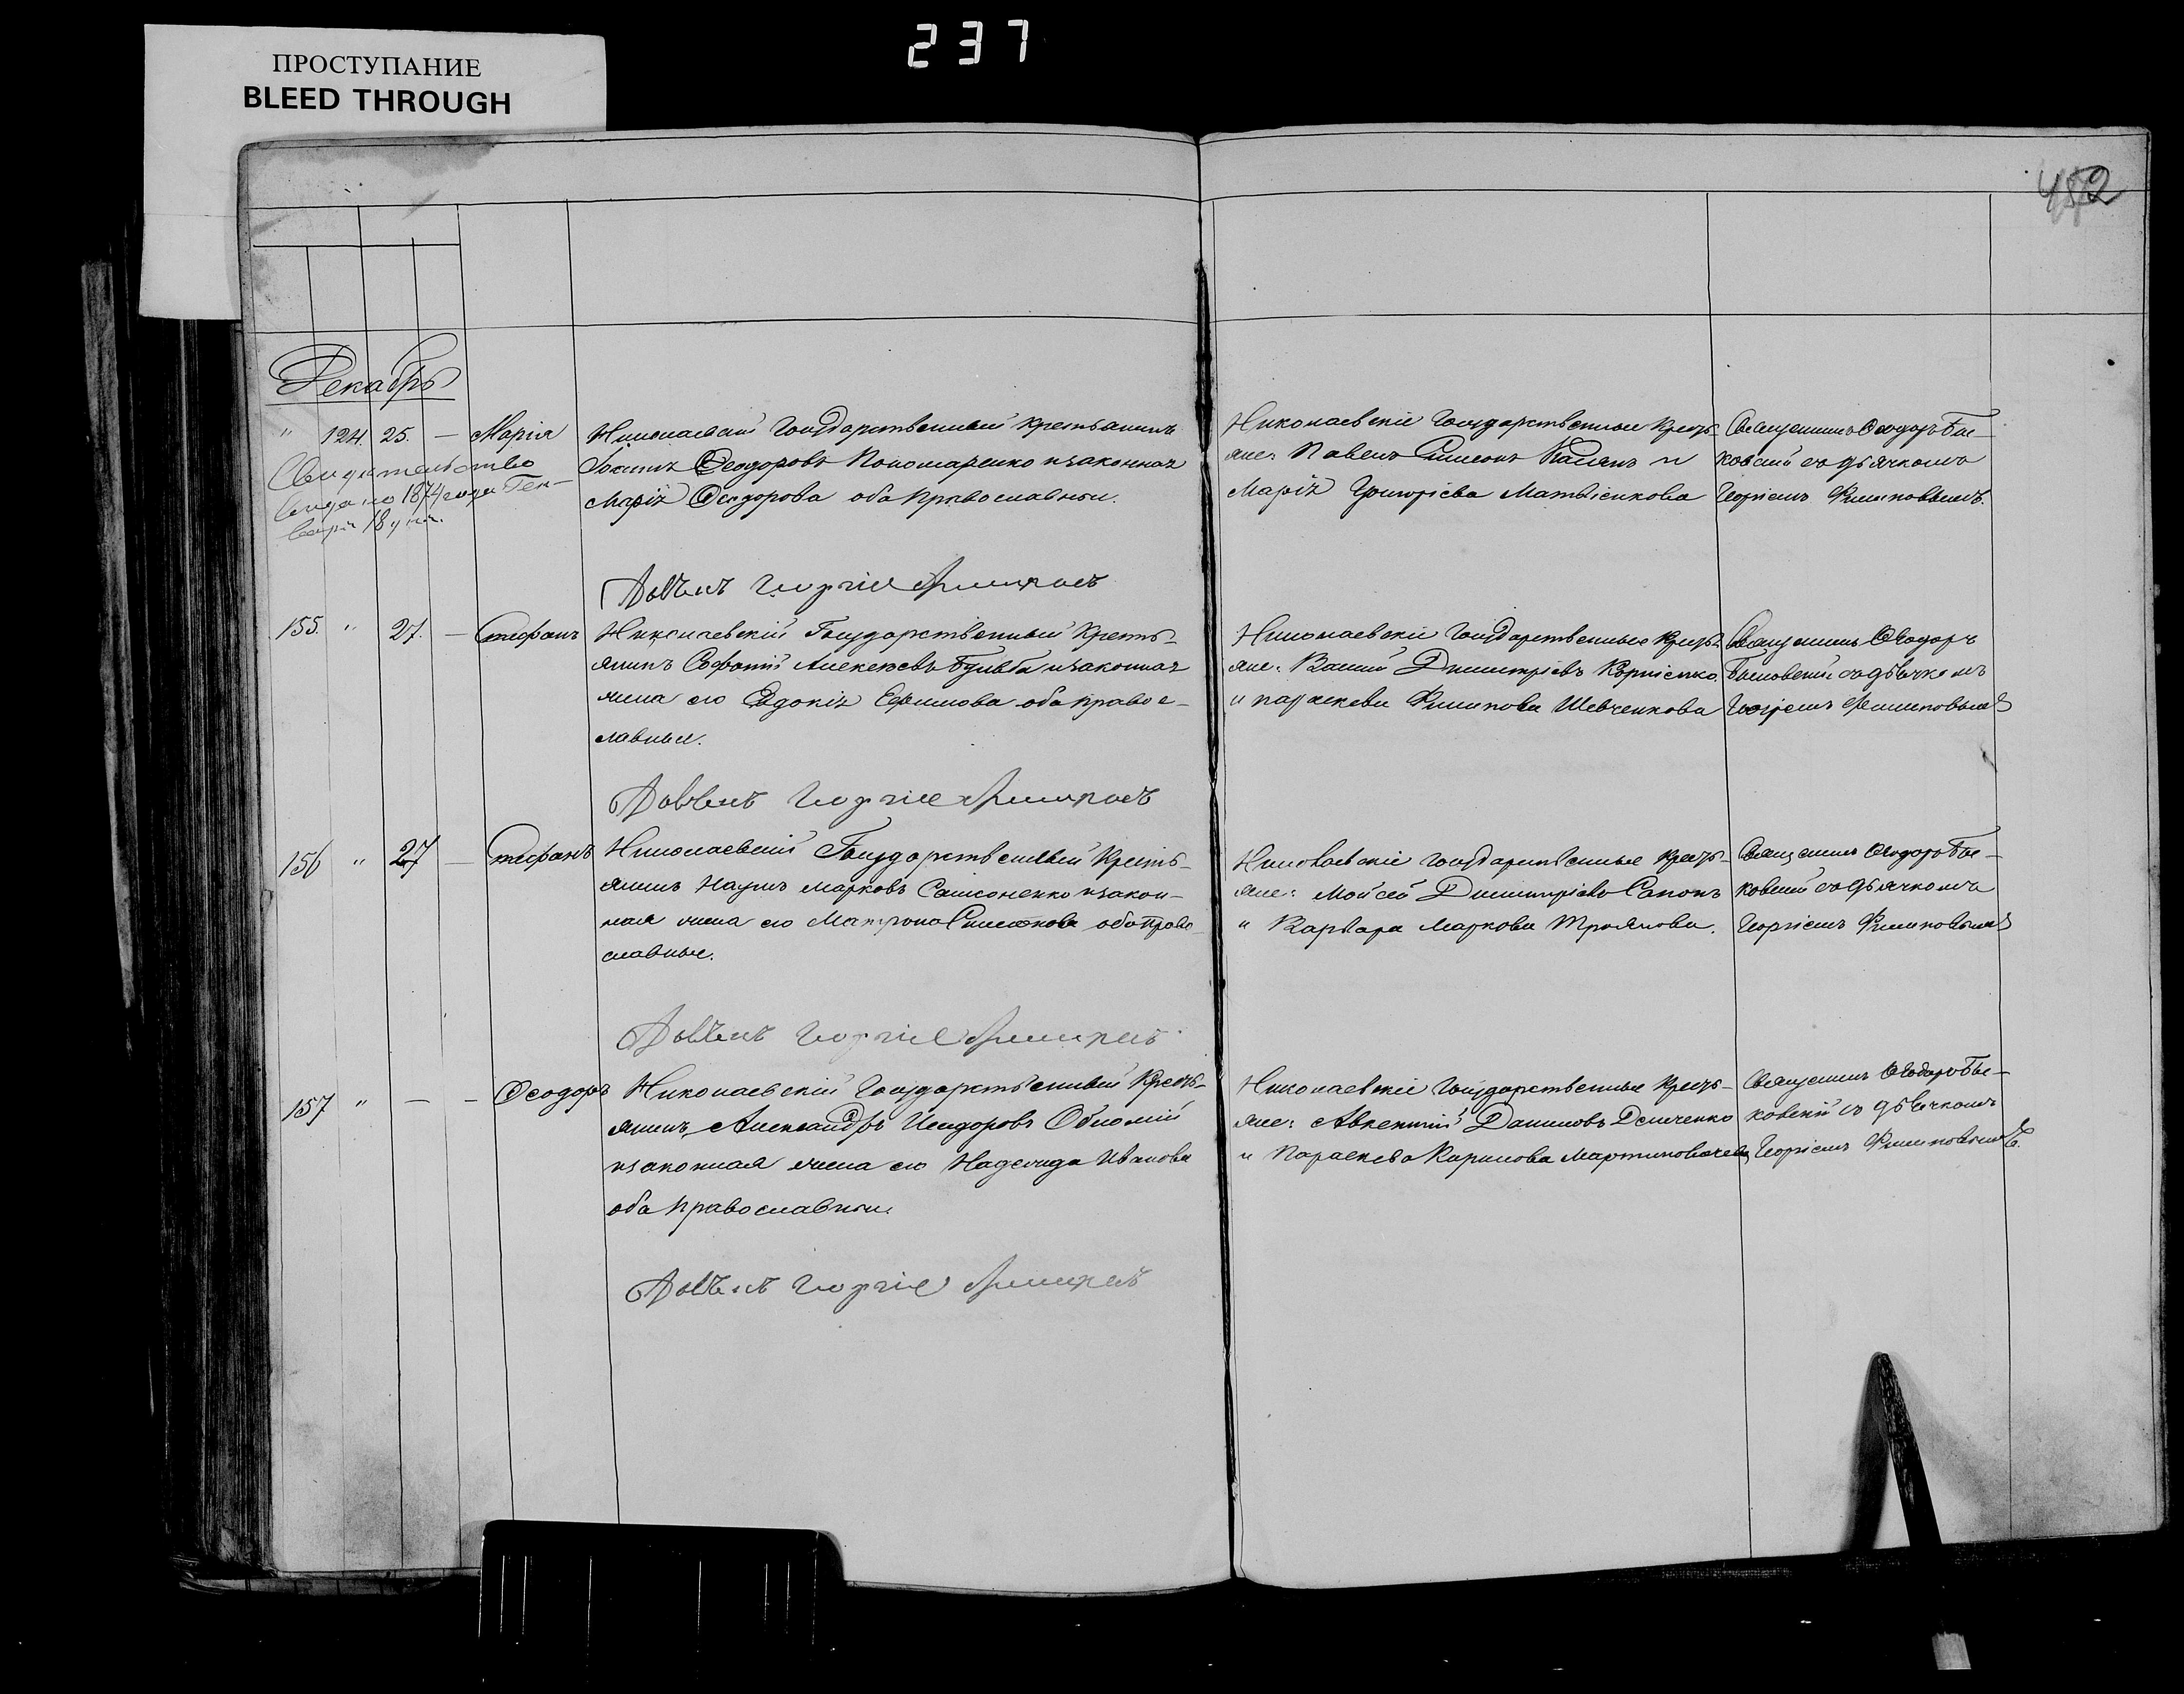 ПРОСТУПАНИЕ
BLEED THROUGH
237
452
Декабрь
" 124. 25. — Марія
Свидетельство
выдано 1874 года Ген-
варя 18 дня.
Николаевскій Государственный Крестьянинъ
Іоаннъ Ѳеодоровъ Пономаренко и законная
Марія Ѳеодорова оба православныи.
Николаевскіе Государственные Кресть-
яне: Павелъ Симеонъ и
Марія Григоріева Матвіенкова
Священникъ Ѳеодоръ Бы-
ковскій съ дьячкомъ
Георгіемъ Филиповымъ.
Георгіе Филиповъ
155. " 27. — Стефанъ
Николаевскій Государственный Кресть-
янинъ Софоній Алексеевъ Бульба и законная
жена его Евдокія Ефимова оба право с-
лавные.
Николаевскіе Государственные Кресть-
яне: Василій Димитріевъ Корніенко
и параскеви Филипова Шевченкова
Священникъ Ѳеодоръ
Быковскій съ дьячкомъ
Георгіемъ Филиповымъ
Георгіе Филиповъ
156 " 27 — Стефанъ
Николаевскій Государственный Кресть-
янинъ Наумъ Марковъ Самсоненко и закон-
ная жена его Матрона Симеонова оба право-
славные.
Николаевскіе Государственные Кресть-
яне: Мойсей Димитріевъ Сапонъ
и Варвара Маркова Троянова.
Священникъ Ѳеодоръ Бы-
ковскій съ дьячкомъ
Георгіемъ Филиповымъ
Георгіе Филиповъ
157 " — — Ѳеодоръ
Николаевскій Государственный Кресть-
янинъ Александръ Исидоровъ
и законная жена его Надежда Иванова
оба православныи.
Николаевскіе Государственные Кресть-
яне: Авксентій Даниловъ Демченко
и Параскева Карпова
Священникъ Ѳеодоръ Бы-
ковскій съ дьячкомъ
Георгіемъ Филиповымъ.
Георгіе Филиповъ